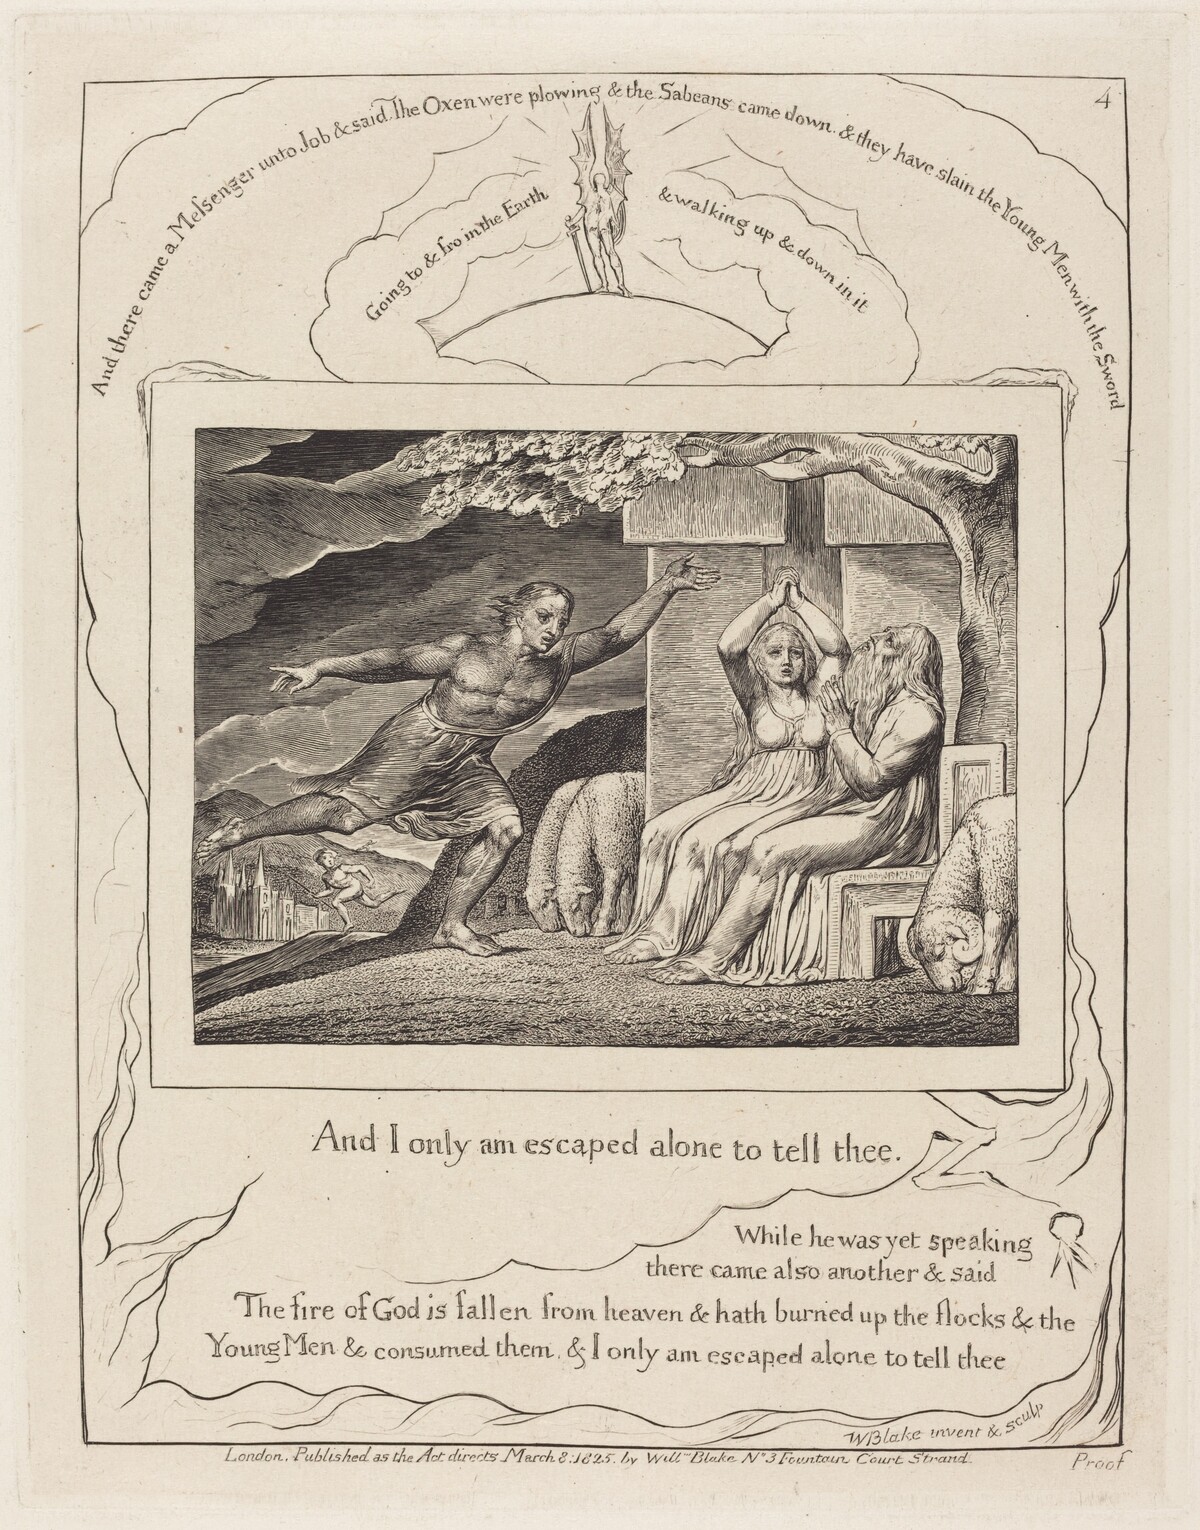 4
And there came a Meſsenger unto Job & said The Oxen were plowing & the Sabeans came down & they have slain the Young Men with the Sword
Going to & fro in the Earth
& walking up & down in it
And I only am escaped alone to tell thee.
While he was yet speaking
there came also another & said
The fire of God is fallen from heaven & hath burned up the flocks & the
Young Men & consumed them & I only am escaped alone to tell thee
WBlake invent & sculp
London. Published as the Act directs March 8: 1825. by Willm Blake No 3 Fountain Court Strand.
Proof